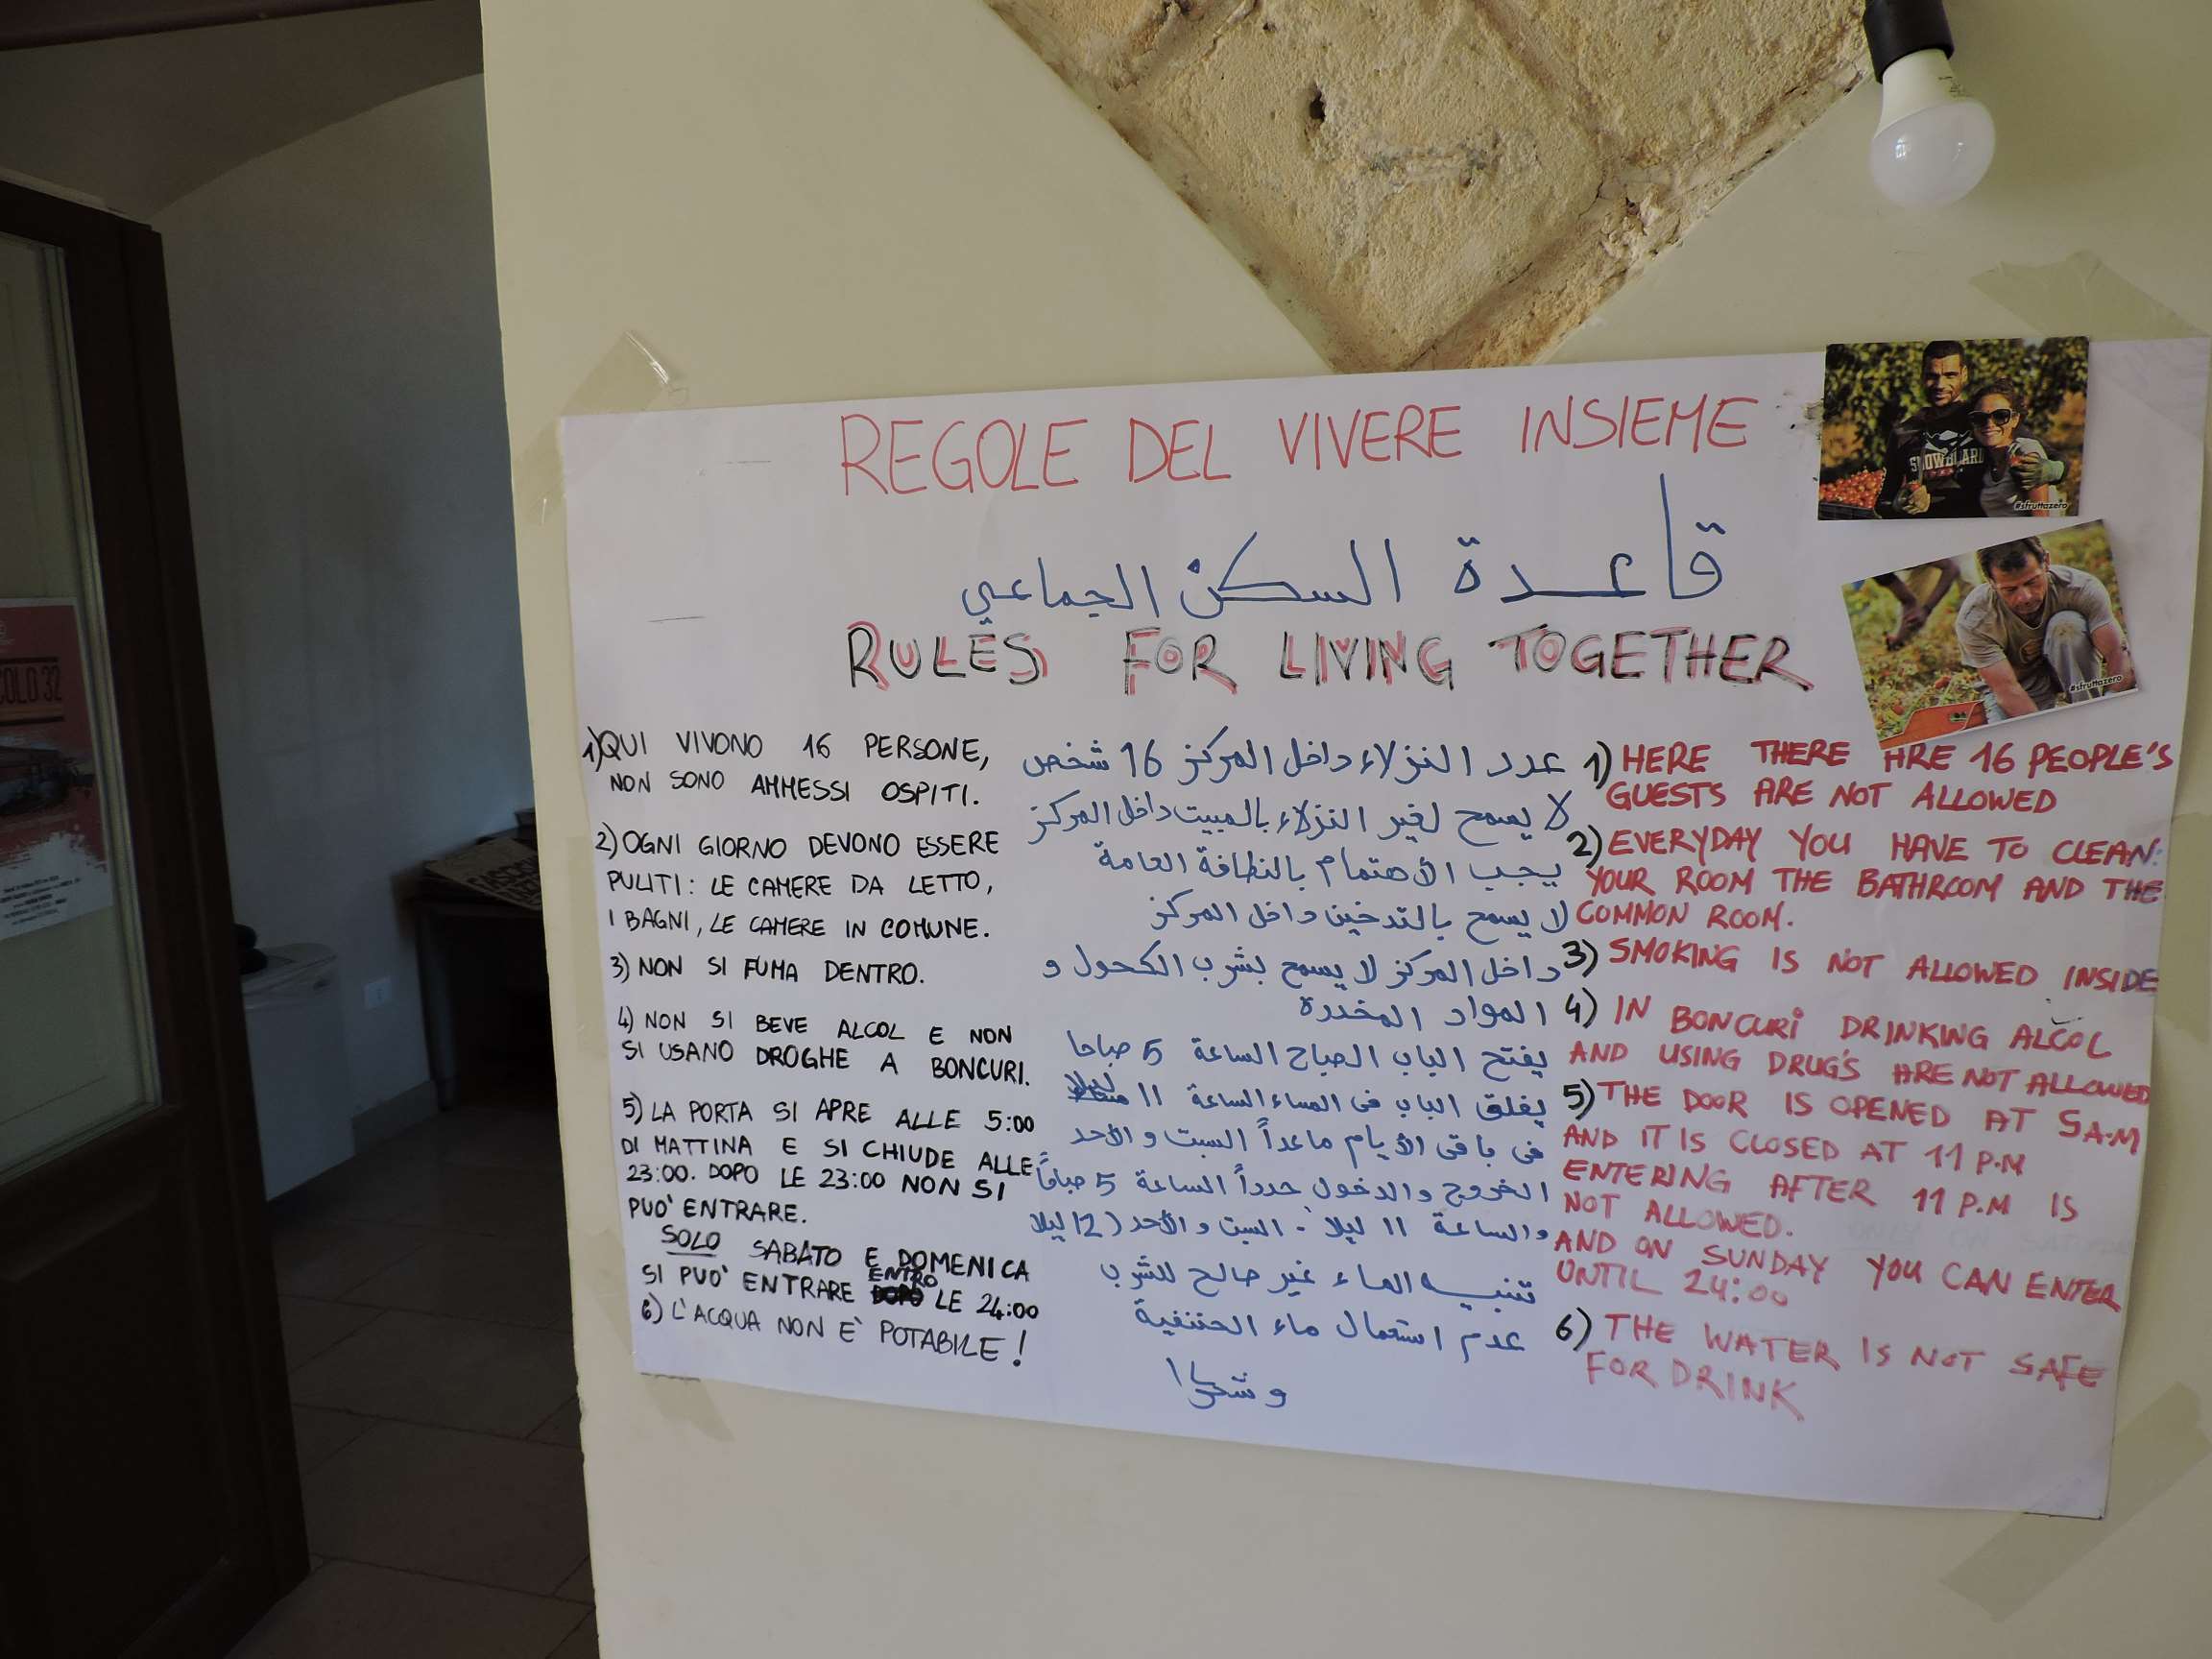 REGOLE DEL VIVERE INSIEME
قاعدة السكن الجماعي
RULES FOR LIVING TOGETHER
1) QUI VIVONO 16 PERSONE,
NON SONO AMMESSI OSPITI.
2) OGNI GIORNO DEVONO ESSERE
PULITI: LE CAMERE DA LETTO,
I BAGNI, LE CAMERE IN COMUNE.
3) NON SI FUMA DENTRO.
4) NON SI BEVE ALCOL E NON
SI USANO DROGHE A BONCURI.
5) LA PORTA SI APRE ALLE 5:00
DI MATTINA E SI CHIUDE ALLE
23:00. DOPO LE 23:00 NON SI
PUO' ENTRARE.
SOLO SABATO E DOMENICA
SI PUO' ENTRARE ENTRO LE 24:00
6) L'ACQUA NON E' POTABILE!
عدد النزلاء داخل المركز 16 شخص
لا يسمح لغير النزلاء بالمبيت داخل المركز
يجب الأهتمام بالنظافة العامة
لا يسمح بالتدخين داخل المركز
داخل المركز لا يسمح بشرب الكحول و
المواد المخدرة
يفتح الباب الصباح الساعة 5 صباحا
يغلق الباب فى المساء الساعة 11 ليلا
فى باقى الأيام ماعداً السبت و الأحد
الخروج والدخول حدداً الساعة 5 صباحاً
والساعة 11 ليلا - السبت و الأحد (12 ليلا
تنبيه الماء غير صالح للشرب
عدم استعمال ماء الحنفية
وشكرا
1) HERE THERE ARE 16 PEOPLE'S
GUESTS ARE NOT ALLOWED
2) EVERYDAY YOU HAVE TO CLEAN:
YOUR ROOM THE BATHROOM AND THE
COMMON ROOM.
3) SMOKING IS NOT ALLOWED INSIDE
4) IN BONCURI DRINKING ALCOL
AND USING DRUG'S ARE NOT ALLOWED
5) THE DOOR IS OPENED AT 5 A.M
AND IT IS CLOSED AT 11 P.M
ENTERING AFTER 11 P.M IS
NOT ALLOWED.
AND ON SUNDAY YOU CAN ENTER
UNTIL 24:00
6) THE WATER IS NOT SAFE
FOR DRINK
#sfruttazero
#sfruttazero